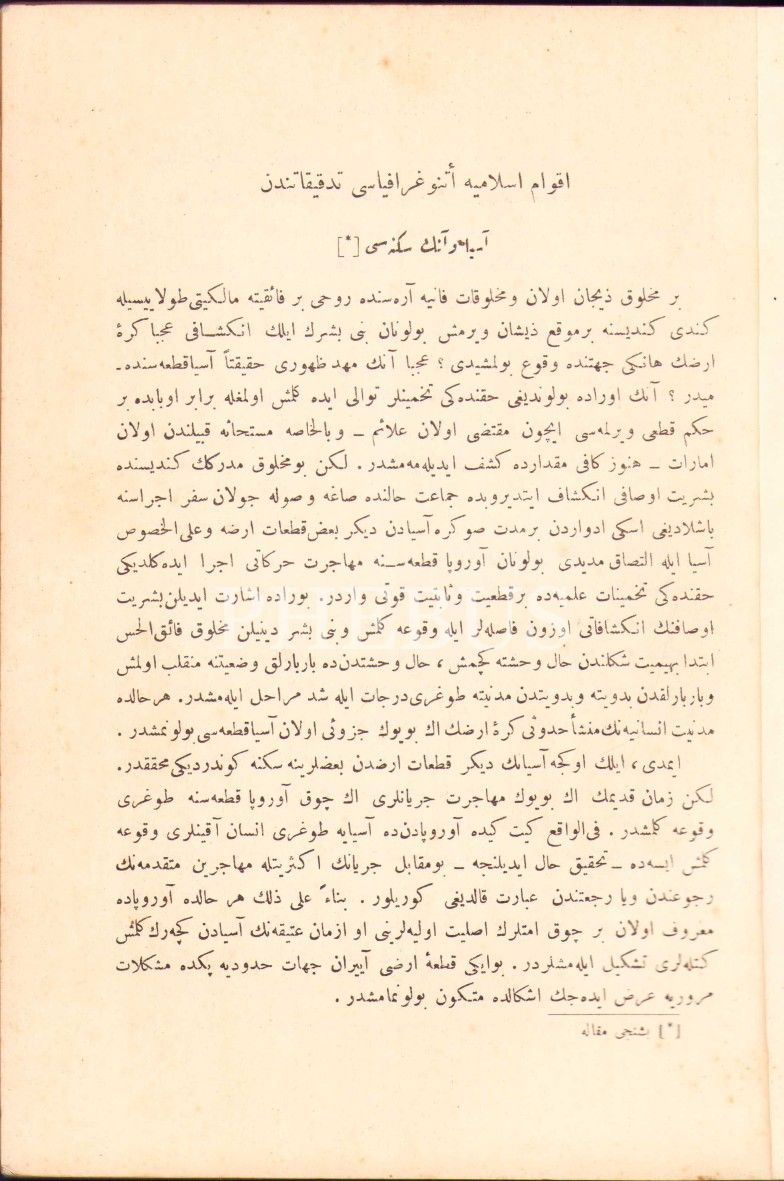 اقوام اسلامیه أتنوغرافیاسی تدقیقاتندن
آسیا و آنك سکنه‌سی [*]
بر مخلوق ذیجان اولان و مخلوقات فانیه آره‌سنده روحی بر فائقیته مالکیتی طولاییسیله
کندی کندیسنه برموقع ذیشان ویرمش بولونان بنی بشرك ایلك انکشافی عجبا کرهٔ
ارضك هانکی جهتنده وقوع بولمشیدی ؟ عجبا آنك مهد ظهوری حقیقتاً آسیا قطعه‌سنده ـ
میدر ؟ آنك اوراده بولوندیغی حقنده‌کی تخمینلر توالی ایده کلمش اولمغله برابر اوبابده بر
حکم قطعی ویرلمه‌سی ایچون مقتضی اولان علائم ـ وبالخاصه مستحاثه قبیلندن اولان
امارات ـ هنوز کافی مقدارده کشف ایدیله‌مه‌مشدر . لکن بومخلوق مدرکك کندیسنده
بشریت اوصافی انکشاف ایتدیروبده جماعت حالنده صاغه وصوله جولان سفر اجراسنه
باشلادیغی اسکی ادواردن برمدت صوکره آسیادن دیکر بعض قطعات ارضه وعلی الخصوص
آسیا ایله التصاق مدیدی بولونان آوروپا قطعه‌سنه مهاجرت حرکاتی اجرا ایده‌کلدیکی
حقنده‌کی تخمینات علمیه‌ده برقطعیت وثابتیت قوتی واردر. بوراده اشارت ایدیلن بشریت
اوصافنك انکشافاتی اوزون فاصله‌لر ایله وقوعه کلمش وبنی بشر دینیلن مخلوق فائق الحس
ابتدا بهیمیت شکلندن حال وحشته کچمش ، حال وحشتدن‌ده باربارلق وضعیتنه منقلب اولمش
وباربارلقدن بدویته وبدویتدن مدنیته طوغری درجات ایله شد مراحل ایله‌مشدر. هر حالده
مدنیت انسانیه‌نك منشأ حدوثی کرهٔ ارضك اك بویوك جزوئی اولان آسیا قطعه‌سی بولونمشدر .
ایمدی ، ایلك اوکجه آسیانك دیکر قطعات ارضدن بعضلرینه سکنه کوندردیکی محققدر.
لکن زمان قدیمك اك بویوك مهاجرت جریانلری اك چوق آوروپا قطعه‌سنه طوغری
وقوعه کلمشدر . فی الواقع کیت کیده آوروپادن‌ده آسیایه طوغری انسان آقینلری وقوعه
کلمش ایسه‌ده ـ تحقیق حال ایدیلنجه ـ بومقابل جریانك اکثریتله مهاجرین متقدمه‌نك
رجوعندن ویا رجعتندن عبارت قالدیغی کوریلور . بناءً علی ذلك هر حالده آوروپاده
معروف اولان بر چوق امتلرك اصلیت اولیه‌لرینی او ازمان عتیقه‌نك آسیادن کچه‌رك کلمش
کتله‌لری تشکیل ایله‌مشلردر. بوایکی قطعهٔ ارضی آییران جهات حدودیه پکده مشکلات
مروریه عرض ایده‌جك اشکالده متکون بولونمامشدر .
[*] بشنجی مقاله